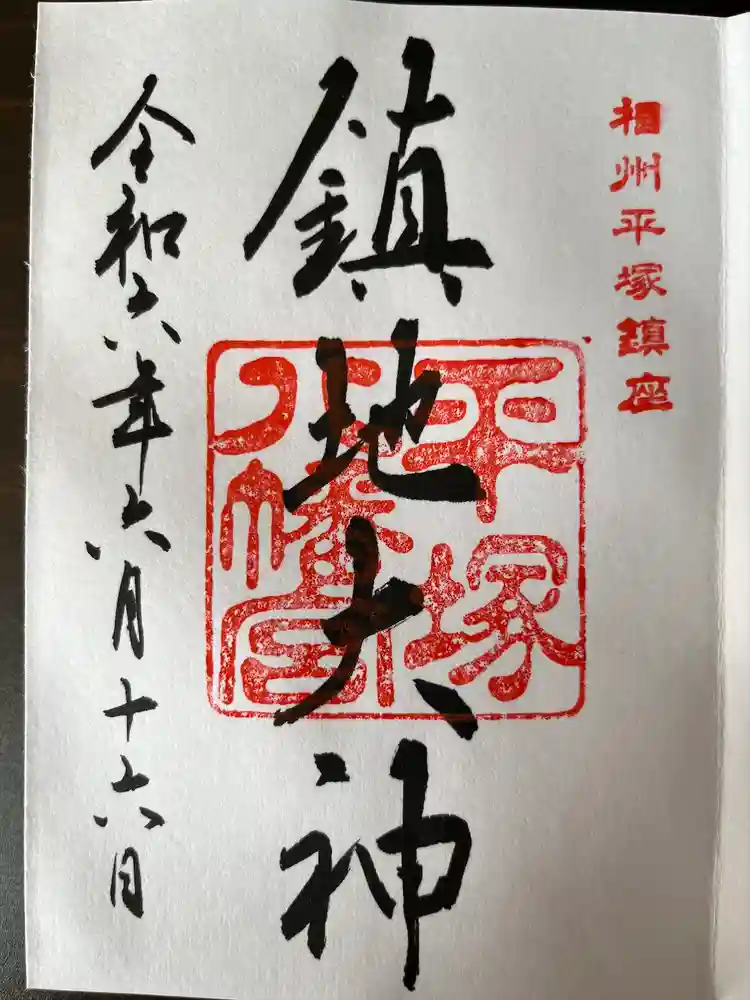 相州平塚鎮座
鎮地大神
平塚
八幡宮
令和六年六月十六日